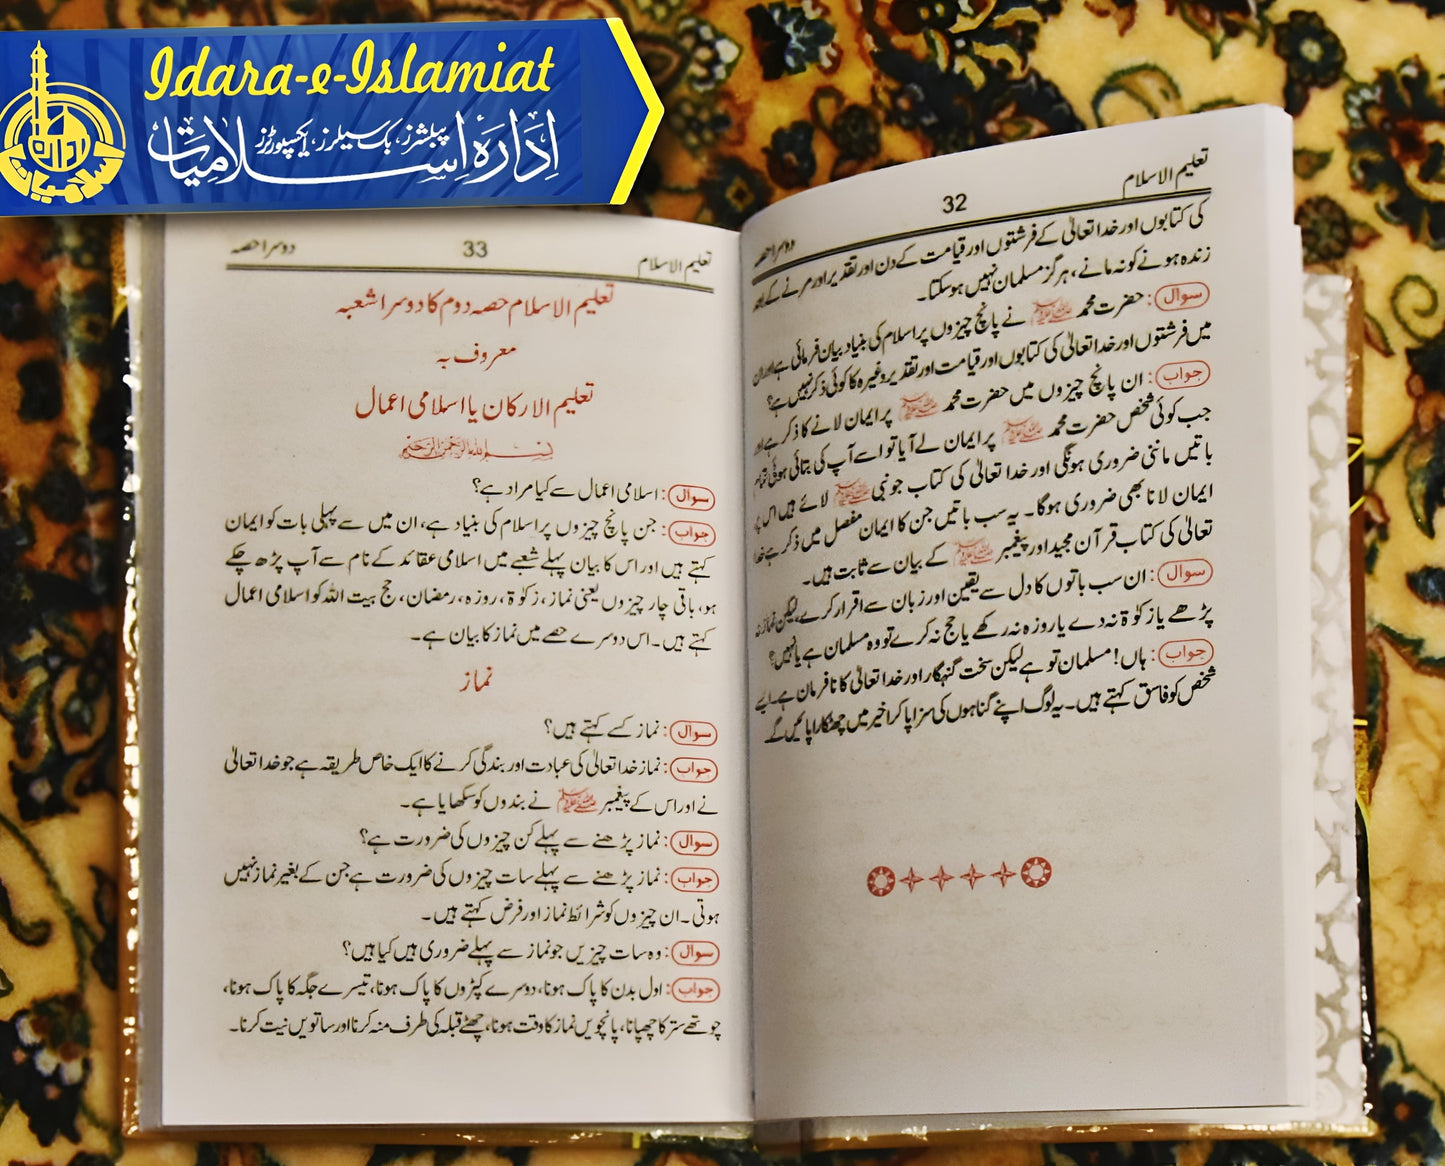 Idara-e-Islamiat
ادارۂ اسلامیات
پبلشرز، بک سیلرز، ایکسپورٹرز
تعلیم الاسلام 32 دوسرا حصہ
کی کتابوں اور خدا تعالیٰ کے فرشتوں اور قیامت کے دن اور تقدیر اور مرنے کے بعد
زندہ ہونے کو نہ مانے، ہرگز مسلمان نہیں ہو سکتا۔
سوال: حضرت محمد ﷺ نے پانچ چیزوں پر اسلام کی بنیاد بیان فرمائی ہے اور ان
میں فرشتوں اور خدا تعالیٰ کی کتابوں اور قیامت اور تقدیر وغیرہ کا کوئی ذکر نہیں ہے؟
جواب: ان پانچ چیزوں میں حضرت محمد ﷺ پر ایمان لانے کا ذکر ہے اور
جب کوئی شخص حضرت محمد ﷺ پر ایمان لے آیا تو اسے آپ کی بتائی ہوئی تمام
باتیں ماننی ضروری ہونگی اور خدا تعالیٰ کی کتاب جو نبی ﷺ لائے ہیں اس پر
ایمان لانا بھی ضروری ہوگا۔ یہ سب باتیں جن کا ایمان مفصل میں ذکر ہے خدا
تعالیٰ کی کتاب قرآن مجید اور پیغمبر ﷺ کے بیان سے ثابت ہیں۔
سوال: ان سب باتوں کا دل سے یقین اور زبان سے اقرار کرے، لیکن نماز نہ
پڑھے یا زکوٰۃ نہ دے یا روزہ نہ رکھے یا حج نہ کرے تو وہ مسلمان ہے یا نہیں؟
جواب: ہاں! مسلمان تو ہے لیکن سخت گنہگار اور خدا تعالیٰ کا نافرمان ہے۔ ایسے
شخص کو فاسق کہتے ہیں۔ یہ لوگ اپنے گناہوں کی سزا پا کر اخیر میں چھٹکارا پائیں گے
تعلیم الاسلام 33 دوسرا حصہ
تعلیم الاسلام حصہ دوم کا دوسرا شعبہ
معروف بہ
تعلیم الارکان یا اسلامی اعمال
بسم اللہ الرحمن الرحیم
سوال: اسلامی اعمال سے کیا مراد ہے؟
جواب: جن پانچ چیزوں پر اسلام کی بنیاد ہے، ان میں سے پہلی بات کو ایمان
کہتے ہیں اور اس کا بیان پہلے شعبے میں اسلامی عقائد کے نام سے آپ پڑھ چکے
ہو، باقی چار چیزوں یعنی نماز، زکوٰۃ، روزہ، رمضان، حج بیت اللہ کو اسلامی اعمال
کہتے ہیں۔ اس دوسرے حصے میں نماز کا بیان ہے۔
نماز
سوال: نماز کسے کہتے ہیں؟
جواب: نماز خدا تعالیٰ کی عبادت اور بندگی کرنے کا ایک خاص طریقہ ہے جو خدا تعالیٰ
نے اور اس کے پیغمبر ﷺ نے بندوں کو سکھایا ہے۔
سوال: نماز پڑھنے سے پہلے کن چیزوں کی ضرورت ہے؟
جواب: نماز پڑھنے سے پہلے سات چیزوں کی ضرورت ہے جن کے بغیر نماز نہیں
ہوتی۔ ان چیزوں کو شرائط نماز اور فرض کہتے ہیں۔
سوال: وہ سات چیزیں جو نماز سے پہلے ضروری ہیں کیا ہیں؟
جواب: اول بدن کا پاک ہونا، دوسرے کپڑوں کا پاک ہونا، تیسرے جگہ کا پاک ہونا،
چوتھے ستر کا چھپانا، پانچویں نماز کا وقت ہونا، چھٹے قبلہ کی طرف منہ کرنا اور ساتویں نیت کرنا۔